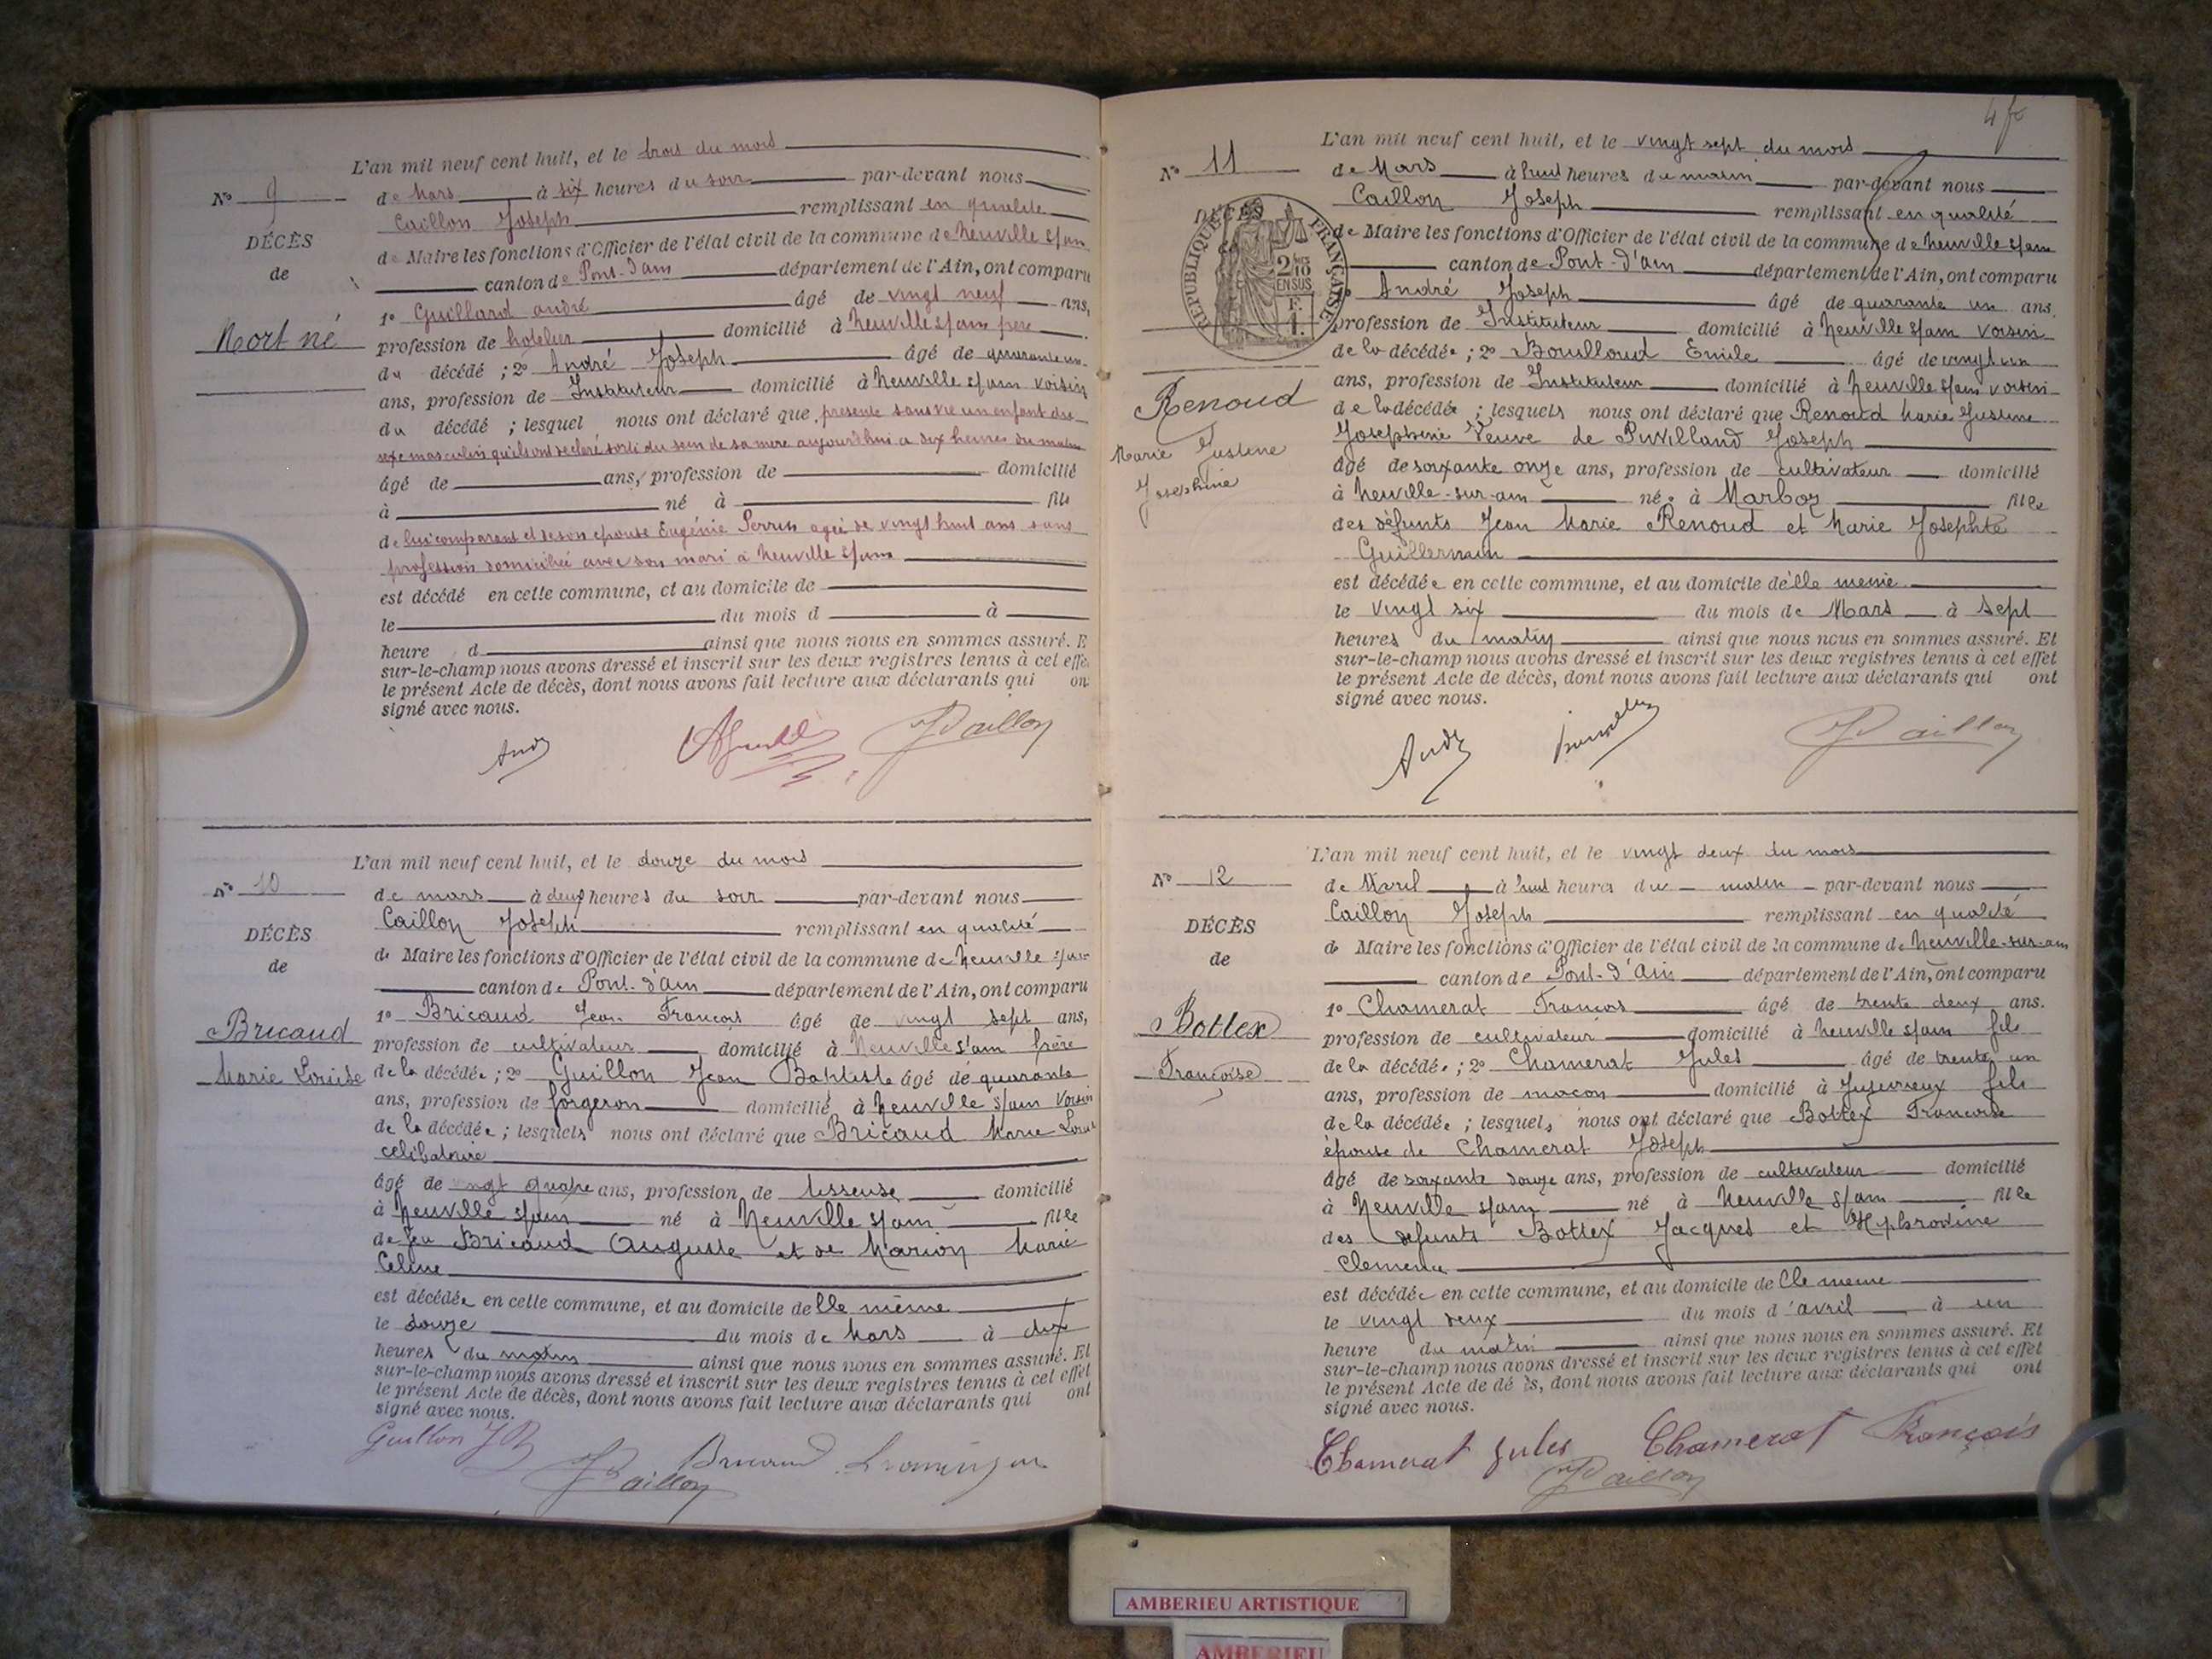 L'an mil neuf cent huit, et le trois du mois
No 9
de Mars à six heures du soir par-devant nous
Caillon Joseph remplissant en qualité
DÉCÈS
de Maire les fonctions d'Officier de l'état civil de la commune de Neuville s/ain
de
canton de Pont-d'ain département de l'Ain, ont comparu
1o Guillard andré âgé de vingt neuf ans,
Mort né
profession de hotelier domicilié à Neuville s/ain père
du décédé ; 2o André Joseph âgé de quarante un
ans, profession de Instituteur domicilié à Neuville s/ain voisin
du décédé ; lesquel nous ont déclaré que, presente sans vie un enfant du
sexe masculin qu'ils ont declaré sorti du sein de sa mere aujourd'hui a six heures du matin
âgé de ans, profession de domicilié
à né à fils
de lui comparant et de son epouse Eugénie Perrin agée de vingt huit ans sans
profession domiciliée avec son mari à Neuville s/ain
est décédé en cette commune, et au domicile de
le du mois d à
heure d ainsi que nous nous en sommes assuré. E
sur-le-champ nous avons dressé et inscrit sur les deux registres tenus à cet effe
le présent Acte de décès, dont nous avons fait lecture aux déclarants qui on
signé avec nous.
André JCaillon
L'an mil neuf cent huit, et le douze du mois
No 10
de mars à deux heures du soir par-devant nous
Caillon Joseph remplissant en qualité
DÉCÈS
de Maire les fonctions d'Officier de l'état civil de la commune de Neuville s/ain
de
canton de Pont-d'ain département de l'Ain, ont comparu
1o Bricaud Jean François âgé de vingt sept ans,
Bricaud
profession de cultivateur domicilié à Neuville s/ain frère
Marie Louise
de la décédée ; 2o Guillon Jean Baptiste âgé de quarante
ans, profession de forgeron domicilié à Neuville s/ain voisin
de la décédée ; lesquels nous ont déclaré que Bricaud Marie Louise
celibataire
âgé de vingt quatre ans, profession de tisseuse domicilié
à Neuville s/ain né à Neuville s/ain fille
de feu Bricaud Auguste et de Marion Marie
Celine
est décédée en cette commune, et au domicile de lle même
le douze du mois de Mars à dix
heures du matin ainsi que nous nous en sommes assuré. Et
sur-le-champ nous avons dressé et inscrit sur les deux registres tenus à cet effet
le présent Acte de décès, dont nous avons fait lecture aux déclarants qui ont
signé avec nous.
Guillon JB Bricaud
JCaillon
4
L'an mil neuf cent huit, et le vingt sept du mois
No 11
de Mars à huit heures du matin par-devant nous
Caillon Joseph remplissant en qualité
DÉCÈS
RÉPUBLIQUE FRANÇAISE
2/10 EN SUS
F. 1.
de Maire les fonctions d'Officier de l'état civil de la commune de Neuville s/ain
canton de Pont-d'ain département de l'Ain, ont comparu
André Joseph âgé de quarante un ans,
profession de Instituteur domicilié à Neuville s/ain voisin
de la décédée ; 2o Bouilloud Emile âgé de vingt un
ans, profession de Instituteur domicilié à Neuville s/ain voisin
Renoud
Marie Justine
Josephine
de la décédée ; lesquels nous ont déclaré que Renoud Marie Justine
Josephine Veuve de Puvilland Joseph
âgé de soixante onze ans, profession de cultivateur domicilié
à Neuville-sur-ain née à Marboz fille
des défunts Jean Marie Renoud et Marie Josephte
Guillermin
est décédée en cette commune, et au domicile de elle meme
le vingt six du mois de Mars à sept
heures du matin ainsi que nous nous en sommes assuré. Et
sur-le-champ nous avons dressé et inscrit sur les deux registres tenus à cet effet
le présent Acte de décès, dont nous avons fait lecture aux déclarants qui ont
signé avec nous.
André JCaillon
L'an mil neuf cent huit, et le vingt deux du mois
No 12
de Avril à huit heures du matin par-devant nous
Caillon Joseph remplissant en qualité
DÉCÈS
de Maire les fonctions d'Officier de l'état civil de la commune de Neuville-sur-ain
de
canton de Pont-d'Ain département de l'Ain, ont comparu
1o Chamerat François âgé de trente deux ans.
Bottex
profession de cultivateur domicilié à Neuville s/ain fils
Françoise
de la décédée ; 2o Chamerat Jules âgé de trente un
ans, profession de maçon domicilié à Jujurieux fils
de la décédée ; lesquels nous ont déclaré que Bottex Francoise
épouse de Chamerat Joseph
âgé de soixante douze ans, profession de cultivateur domicilié
à Neuville s/ain né à Neuville s/ain fille
des defunts Bottex Jacques et
Clemence
est décédée en cette commune, et au domicile de lle meme
le vingt deux du mois d'avril à un
heure du matin ainsi que nous nous en sommes assuré. Et
sur-le-champ nous avons dressé et inscrit sur les deux registres tenus à cet effet
le présent Acte de dé ès, dont nous avons fait lecture aux déclarants qui ont
signé avec nous.
Chamerat Jules Chamerat François
JCaillon
AMBERIEU ARTISTIQUE
AMBERIEU